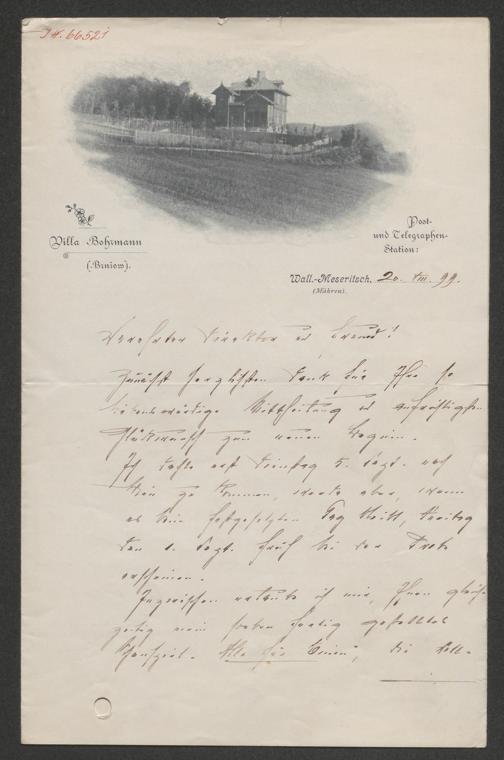 J.N. 66521
Villa Bohrmann
(Brniow).
Post-
und Telegraphen-
Station:
Wall.-Meseritsch, 20. VIII. 99.
(Mähren).
Verehrter Direktor und Freund!
Zunächst herzlichsten Dank für Ihre so
liebenswürdige Mittheilung und aufrichtigsten
Glückwunsch zum neuen Beginn.
Ich dachte erst Dienstag 5. Sept. nach
Wien zu kommen, werde aber, wenn
es beim festgesetzten Tag bleibt, Freitag
den 1. Sept. früh bei der Probe
erscheinen.
Inzwischen erlaube ich mir, Ihnen gleich-
zeitig mein soeben fertig gestelltes
Schauspiel „Alle für Einen“, die